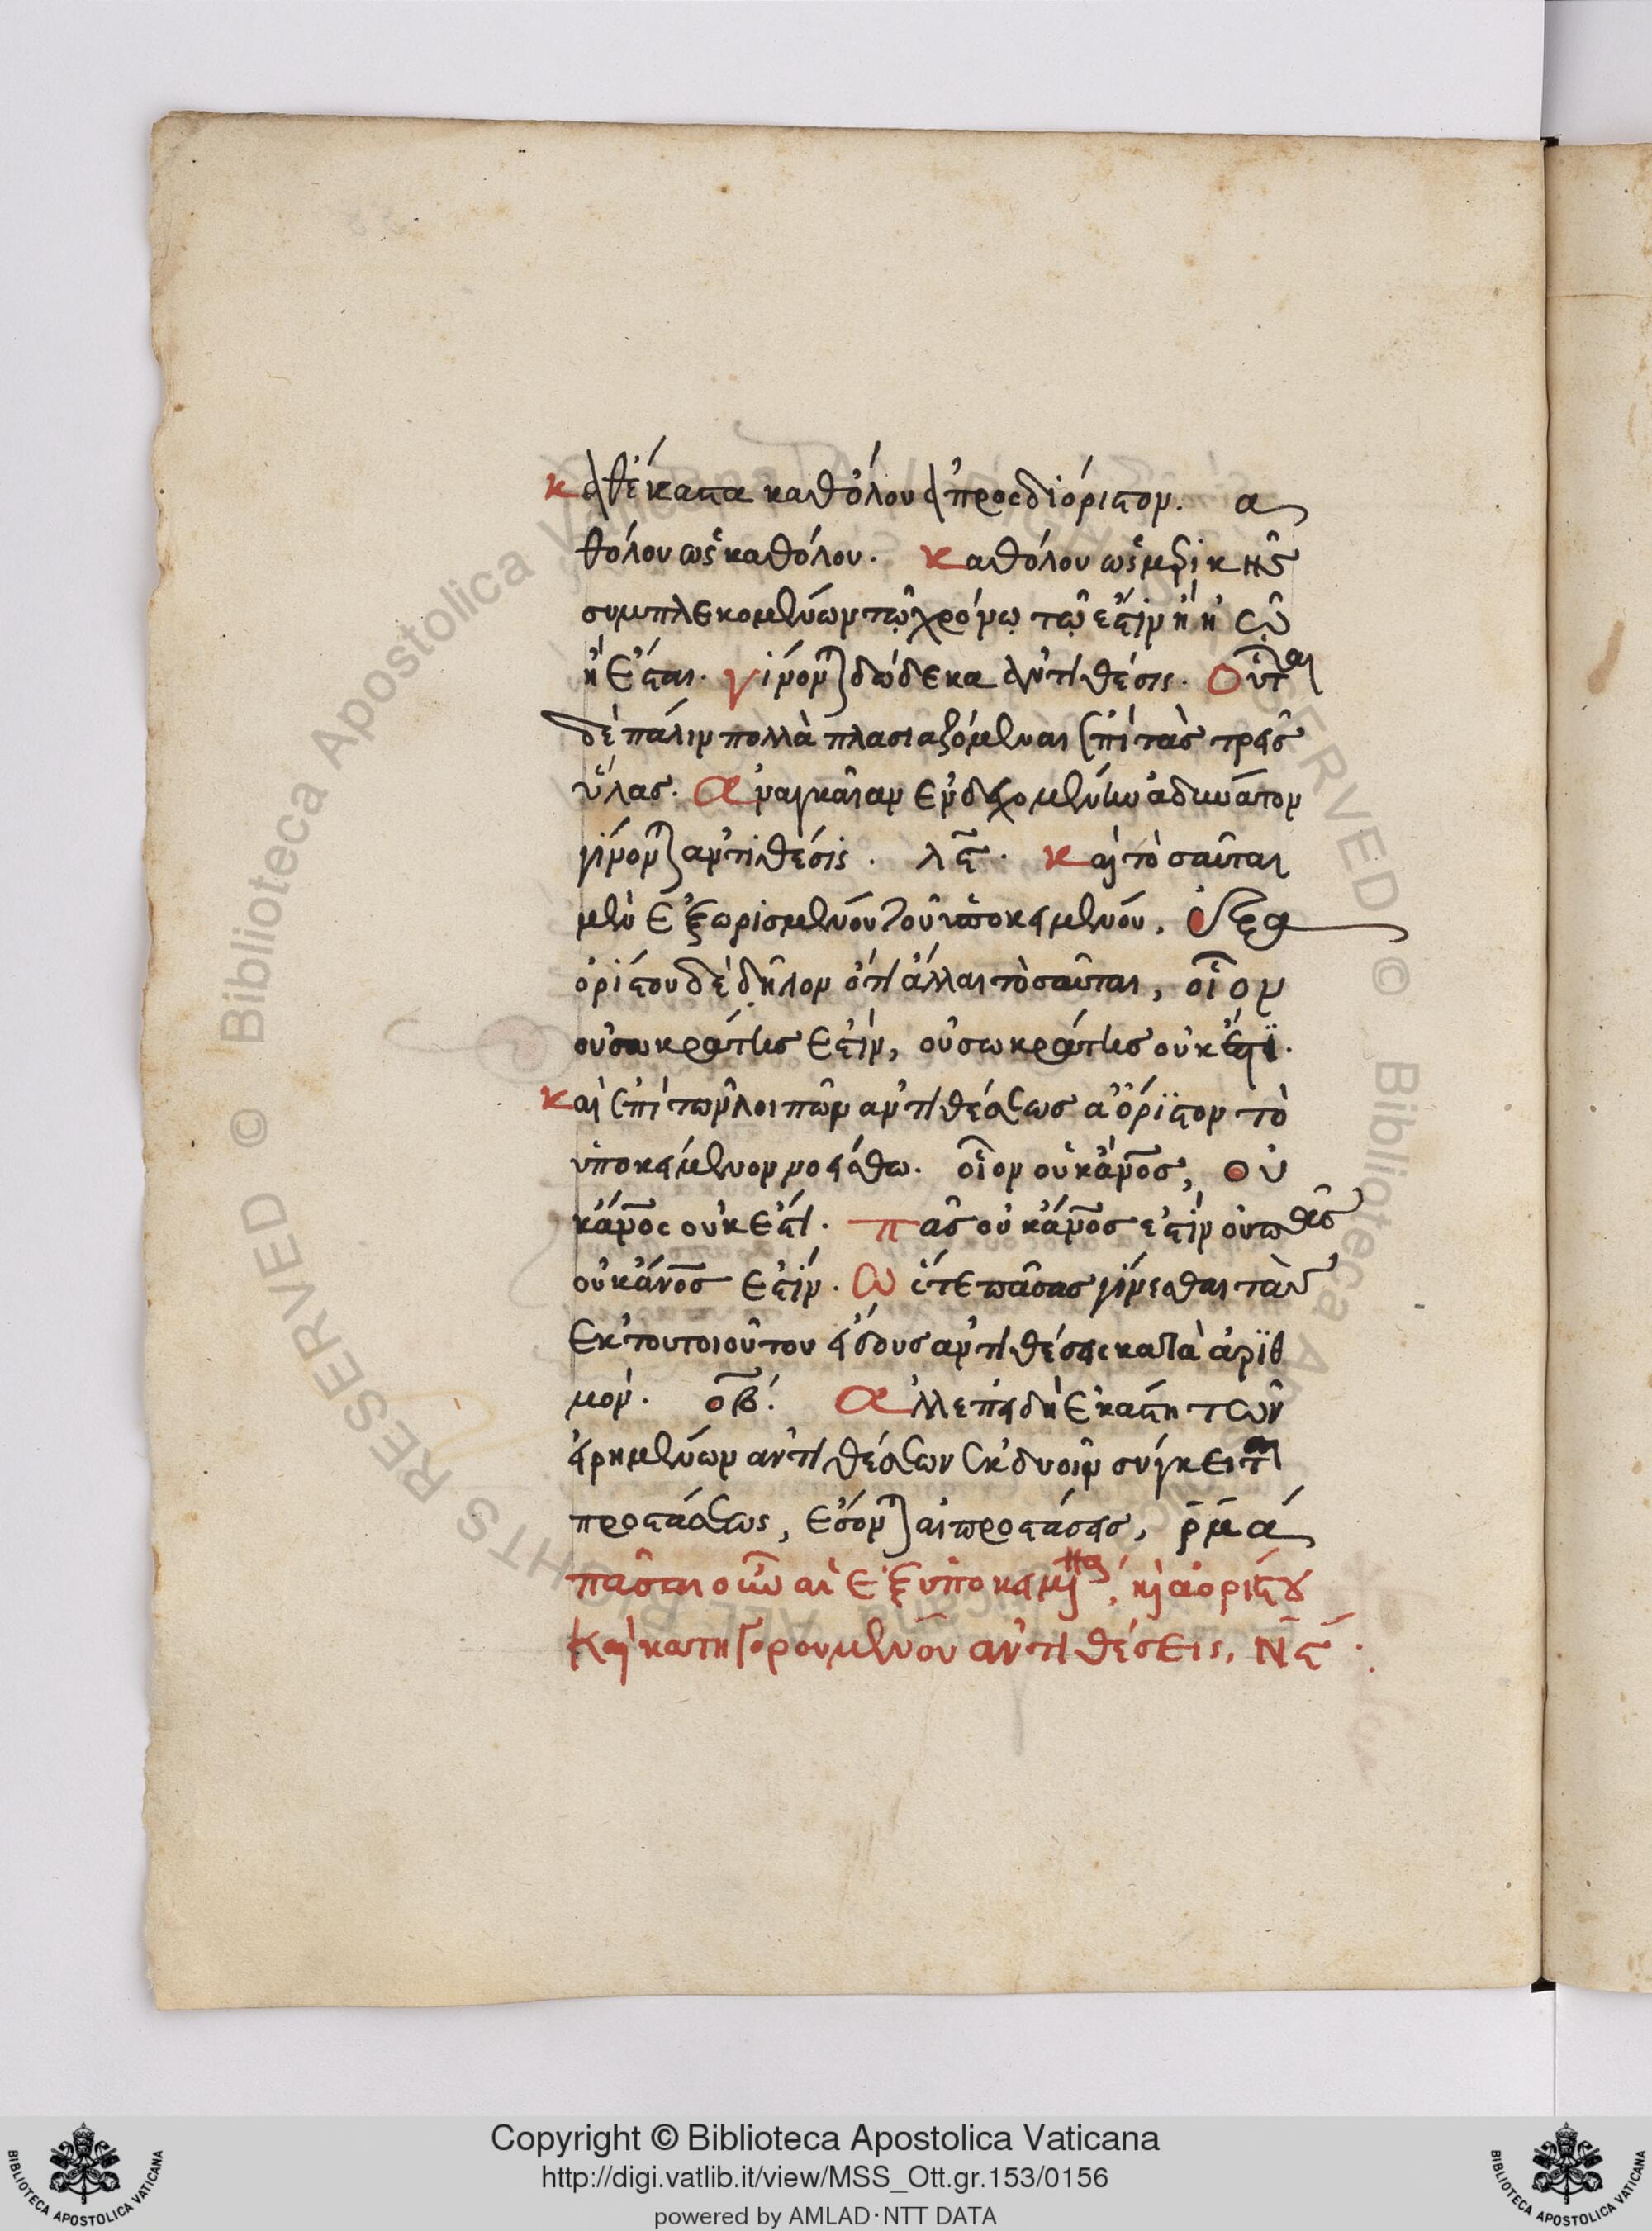 καθέκαστα καθόλου ἀπροσδιόριστον. α
θόλου ὡς καθόλου. Καθόλου ὡς μερικῆς
συμπλεκομένων τῷ χρόνῳ τῷ ἐστὶν ἢ ἦ
ἢ ἔσται. γίνονται δώδεκα ἀντιθέσις. Οὗται
δὲ πάλιν πολλὰ πλασιαζόμεναι ἐπὶ τὰς τρεῖς
ὕλας. Αναγκαίαν ἐνδεχομένην ἀδυνάτον
γίνονται ἀντιθέσις. λϛ. Καὶ τοσαῦται
μὲν ἐξ ὡρισμένου τοῦ ὑποκειμένου.
ὁρίστου δὲ δῆλον ὅτι ἄλλαι τοσαῦται, οἷον
οὐ σωκράτης ἐστὶν, οὐ σωκράτης οὐκ ἔστι.
καὶ ἐπὶ τῶν λοιπῶν ἀντιθέσεως ἀόριστον τὸ
ὑποκείμενον νοείσθω. οἷον οὐκ ἄνος, οὐ
κ ἄνος οὐκ ἔστι. πᾶς οὐκ ἄνος ἐστὶν
οὐκ ἄνος ἐστίν. Ὡστε πάσας γίνεσθαι τὰς
ἐκ τοῦ τοιούτου εἴδους ἀντιθέσεις κατὰ ἀριθ
μόν. οβ. Αλλ ἐπειδὴ ἑκάστη τῶν
εἰρημένων ἀντιθέσεων ἐκ δυοῖν σύγκειται
προτάσεως, ἔσονται αἱ προτάσεις, ρμ
πᾶσαι οὖν αἱ ἐξ ὑποκειμένης, καὶ ἀορίστου
Καὶ κατηγορουμένου ἀντιθέσεις.
Copyright © Biblioteca Apostolica Vaticana
http://digi.vatlib.it/view/MSS_Ott.gr.153/0156
powered by AMLAD·NTT DATA